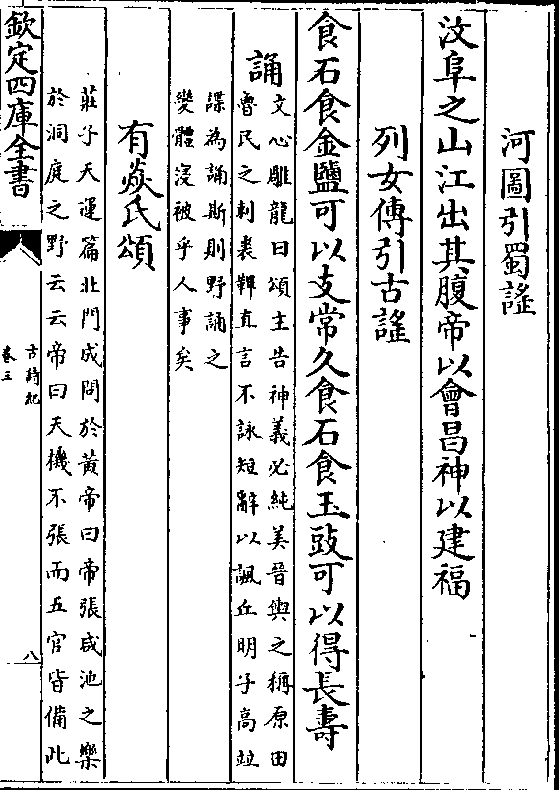 河圖引蜀謠
汶阜之山江出其腹帝以會昌神以建福
列女傳引古謠
食石食金鹽可以支常久食石食玉豉可以得長壽
誦
文心雕龍曰頌主告神義必純美晉輿之稱原田
魯民之刺裘鞸直言不詠短辭以諷丘明子高竝
諜為誦斯則野誦之
變體浸被乎人事矣
有焱氏頌
莊子天運篇北門成問於黃帝曰帝張咸池之樂
於洞庭之野云云帝曰天機不張而五官皆備此
欽定四庫全書
古詩紀
卷三
八